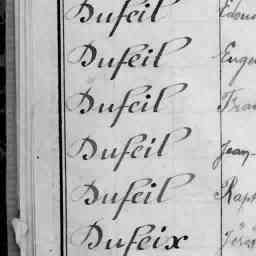 Dufeil
Dufeil Euge
Dufeil Fran
Dufeil Jean-
Dufeil Raph
Dufeix